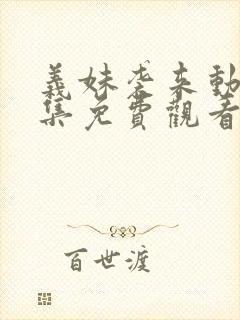 義妹袭来動
集免費觀看
百世渡